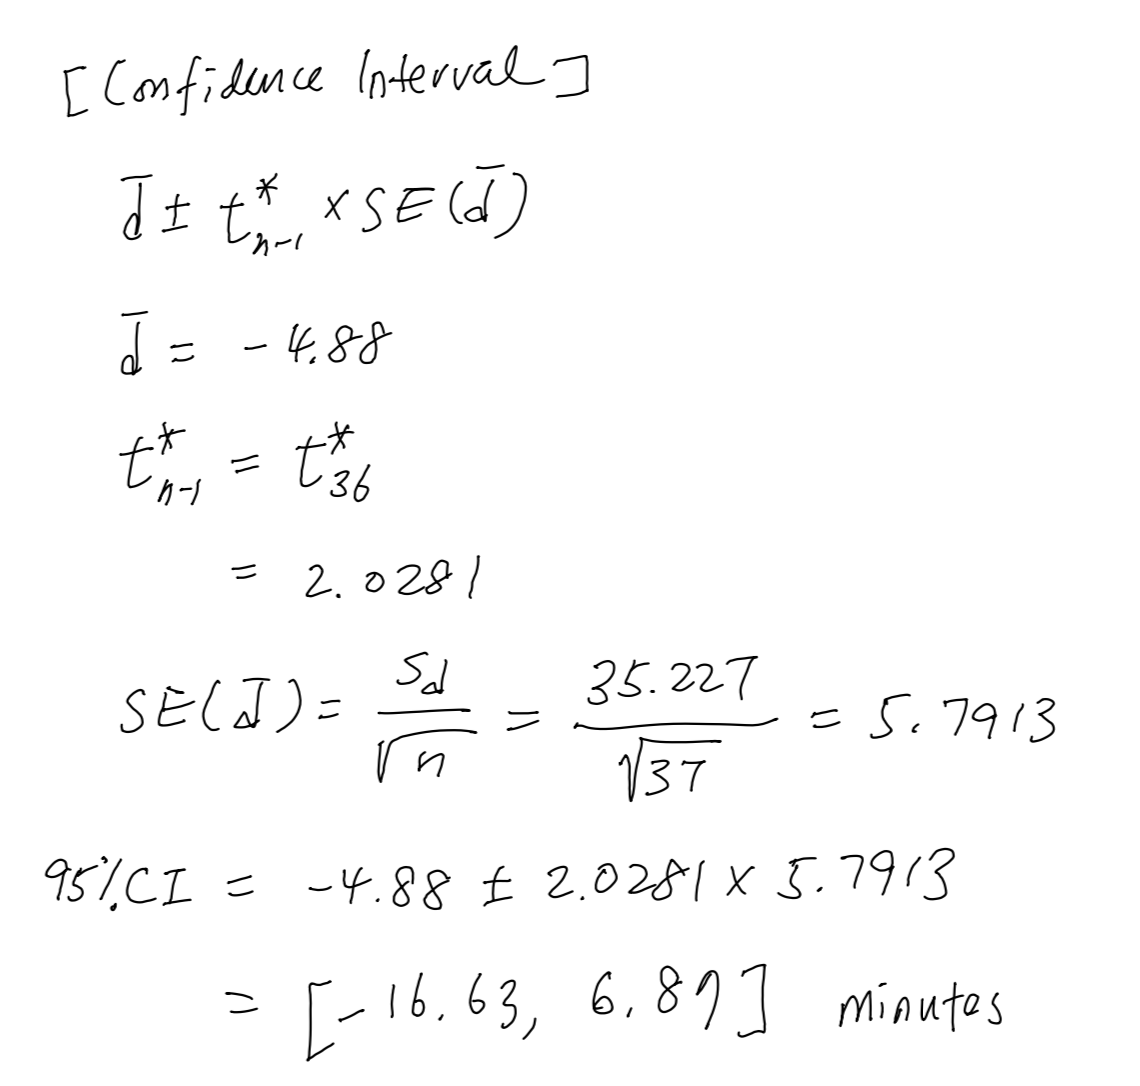 [Confidence Interval]
d̄ ± t*ₙ₋₁ × SE(d̄)
d̄ = -4.88
t*ₙ₋₁ = t*₃₆
= 2.0281
SE(d̄) = s_d/√n = 35.227/√37 = 5.7913
95% CI = -4.88 ± 2.0281 × 5.7913
= [-16.63, 6.87] minutes